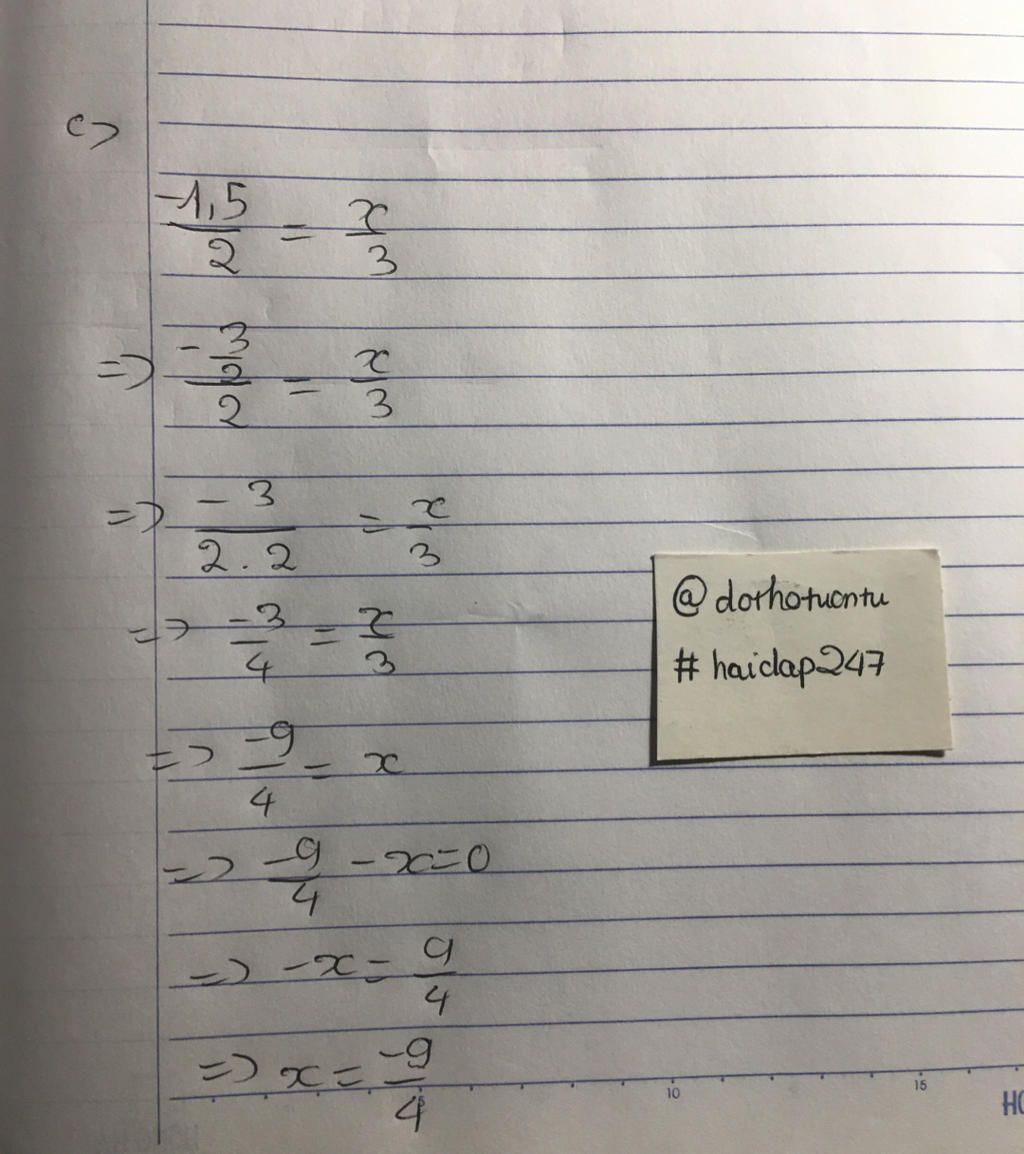 c>
-1,5/2 = x/3
=> (-3/2)/2 = x/3
=> -3/(2.2) = x/3
=> -3/4 = x/3
=> -9/4 = x
=> -9/4 - x = 0
=> -x = 9/4
=> x = -9/4
@dorhotuontu
# haidap247
5 10 15
HO